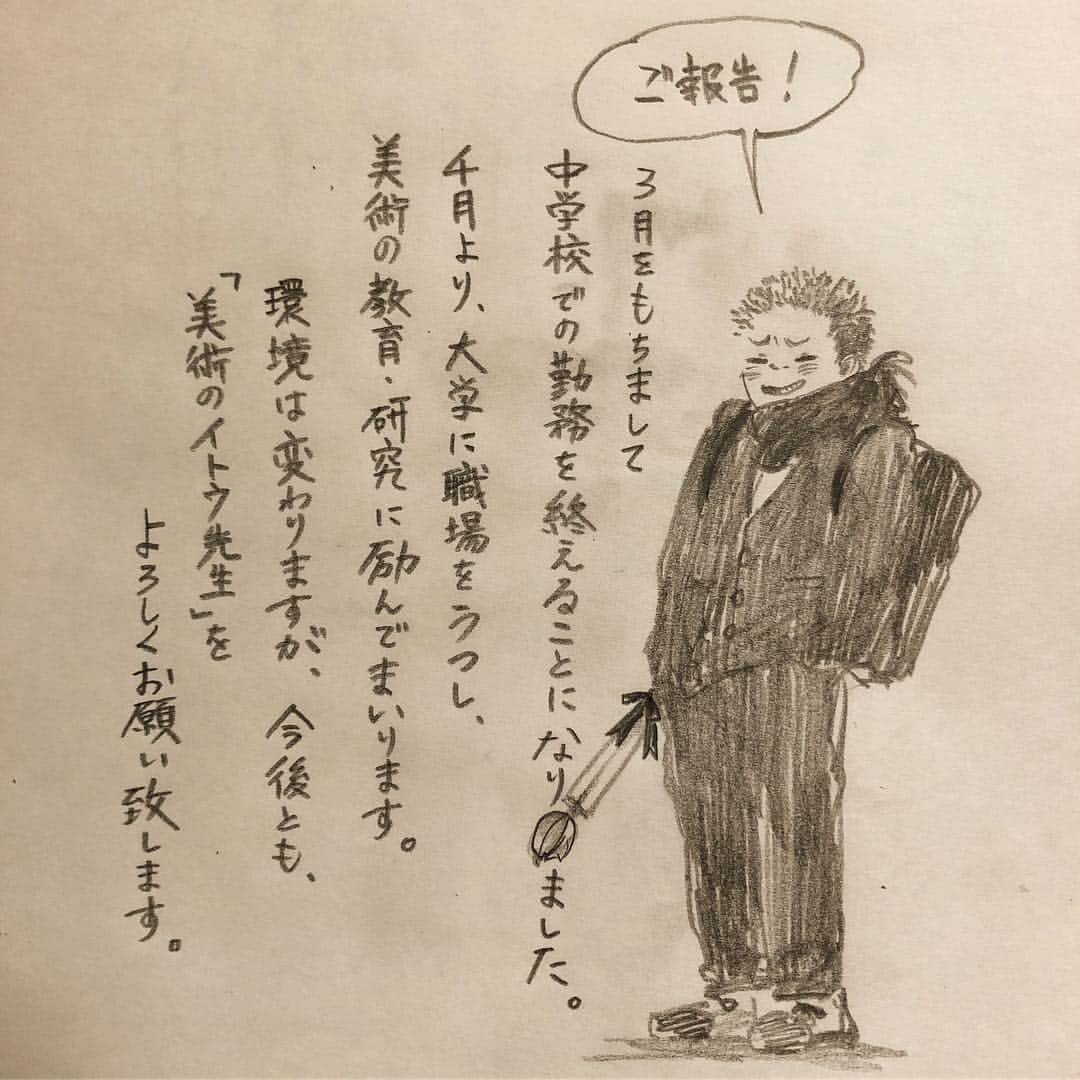 ご報告!
3月をもちまして
中学校での勤務を終えることになりました。
千月より、大学に職場をうつし、
美術の教育・研究に励んでまいります。
環境は変わりますが、今後とも、
「美術のイトウ先生」を
よろしくお願い致します。